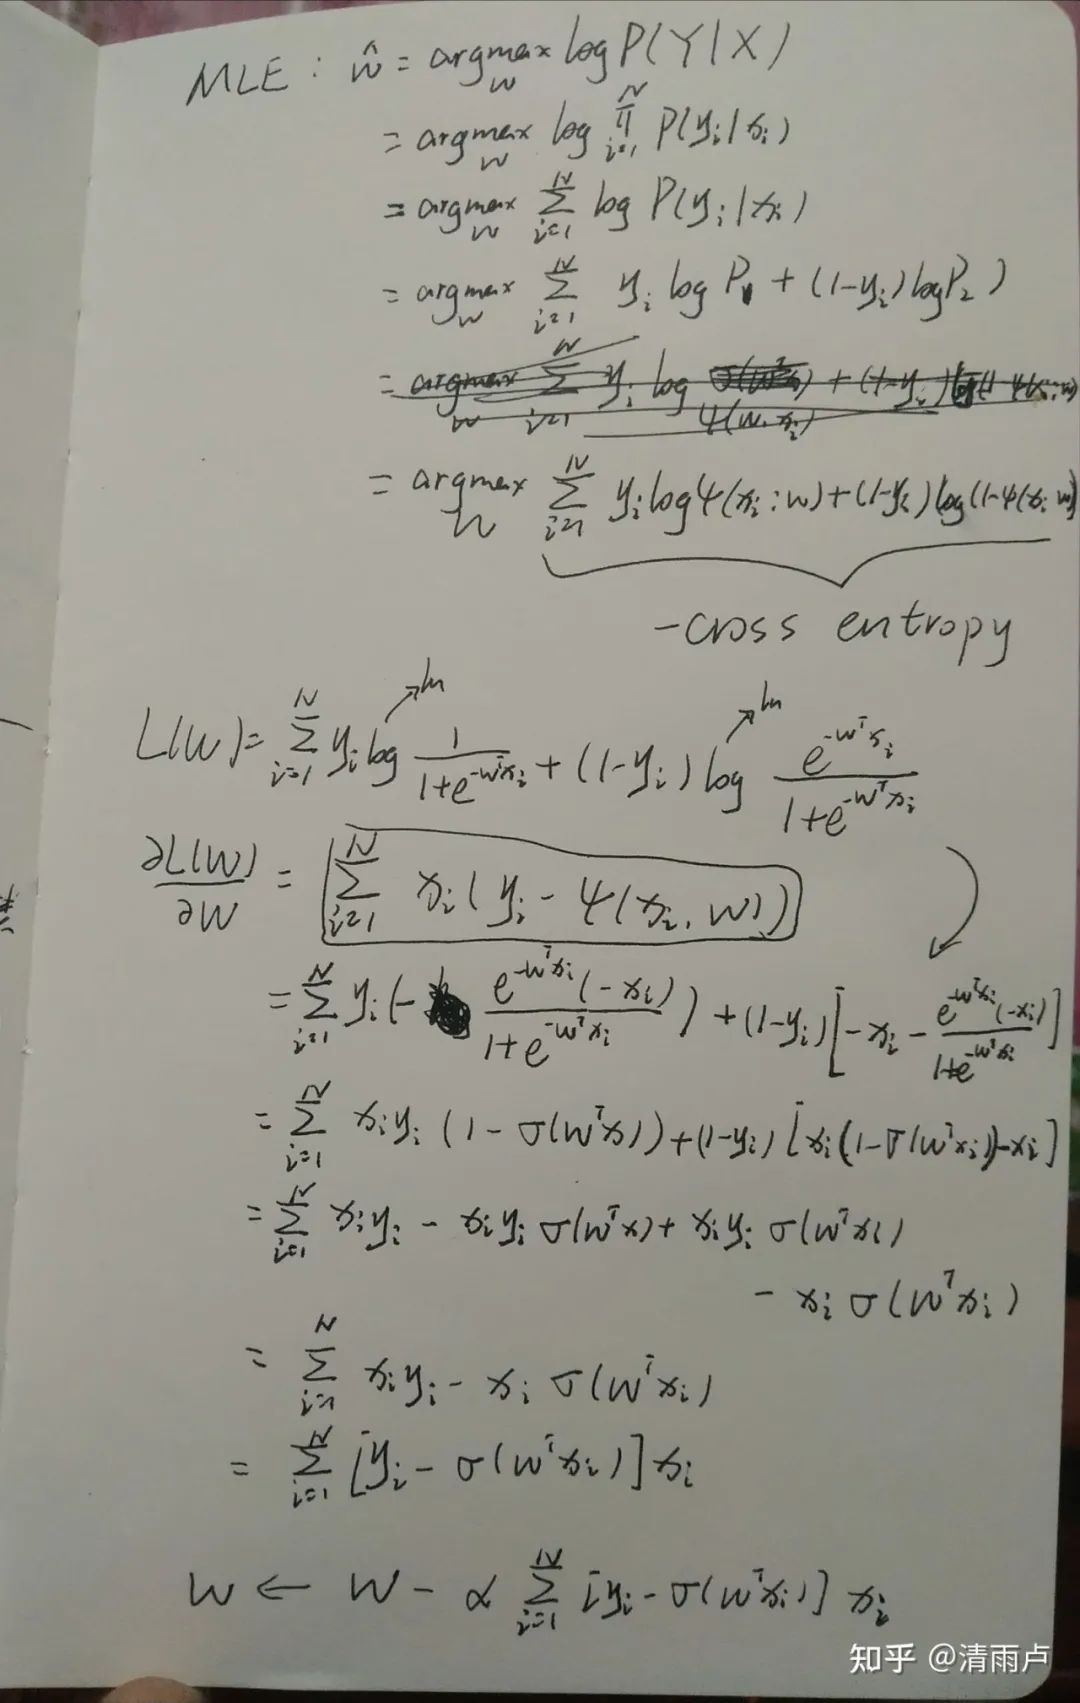 MLE: ŵ = argmax_w log P(Y|X)
= argmax_w log ∏_{i=1}^N P(y_i|x_i)
= argmax_w ∑_{i=1}^N log P(y_i|x_i)
= argmax_w ∑_{i=1}^N y_i log P_1 + (1-y_i) log P_2)
= argmax_w ∑_{i=1}^N y_i log ψ(w, x_i) + (1-y_i) log(1-ψ(x_i;w)
= argmax_w ∑_{i=1}^N y_i log ψ(x_i;w) + (1-y_i) log(1-ψ(x_i;w)
-cross entropy
ln ln
L(w) = ∑_{i=1}^N y_i log 1/(1+e^{-w^T x_i}) + (1-y_i) log e^{-w^T x_i}/(1+e^{-w^T x_i})
∂L(w)/∂w = ∑_{i=1}^N x_i(y_i - ψ(x_i, w))
= ∑_{i=1}^N y_i(- e^{-w^T x_i}(-x_i)/(1+e^{-w^T x_i})) + (1-y_i)[-x_i - e^{-w^T x_i}(-x_i)/(1+e^{-w^T x_i})]
= ∑_{i=1}^N x_i y_i (1-σ(w^T x)) + (1-y_i)[x_i(1-σ(w^T x_i))-x_i]
= ∑_{i=1}^N x_i y_i - x_i y_i σ(w^T x) + x_i y_i σ(w^T x_i)
- x_i σ(w^T x_i)
= ∑_{i=1}^N x_i y_i - x_i σ(w^T x_i)
= ∑_{i=1}^N [y_i - σ(w^T x_i)] x_i
w ← w - α ∑_{i=1}^N [y_i - σ(w^T x_i)] x_i
知乎 @清雨卢